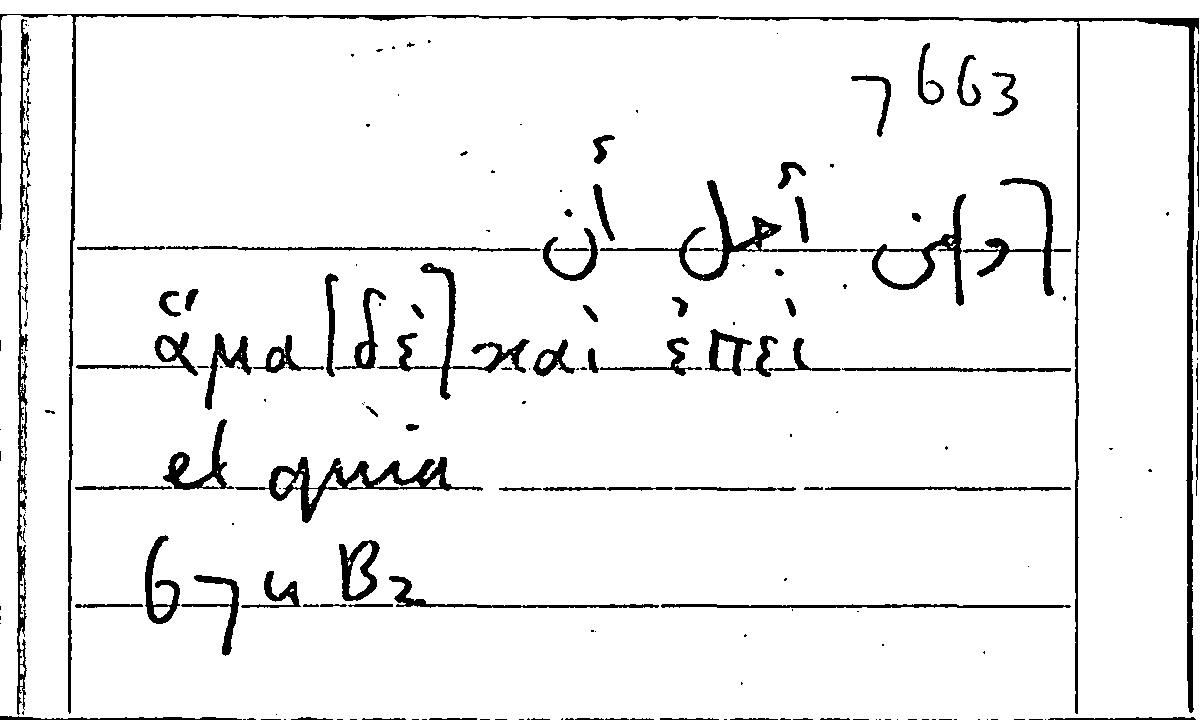 7663
[و]من أجل أن
ἅμα [δὲ] καὶ ἐπεὶ
et quia
67 u B2